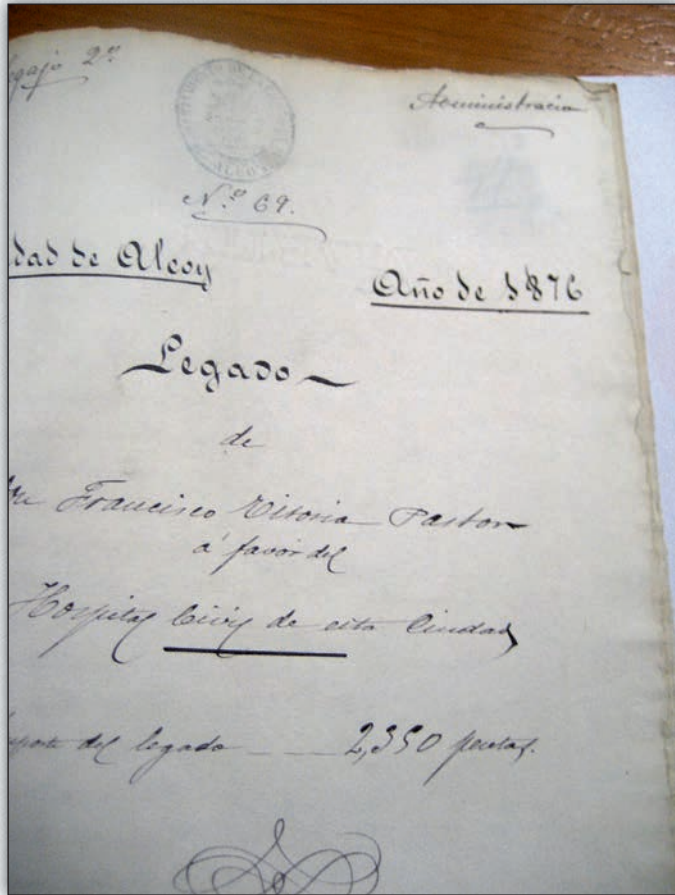 egajo 2º
Administracion
N.º 69.
dad de Alcoy
Año de 1876
Legado
de
Don Francisco Vitoria Pastor
á favor del
Hospital Civil de esta Ciudad
mporte del legado 2,350 pesetas.